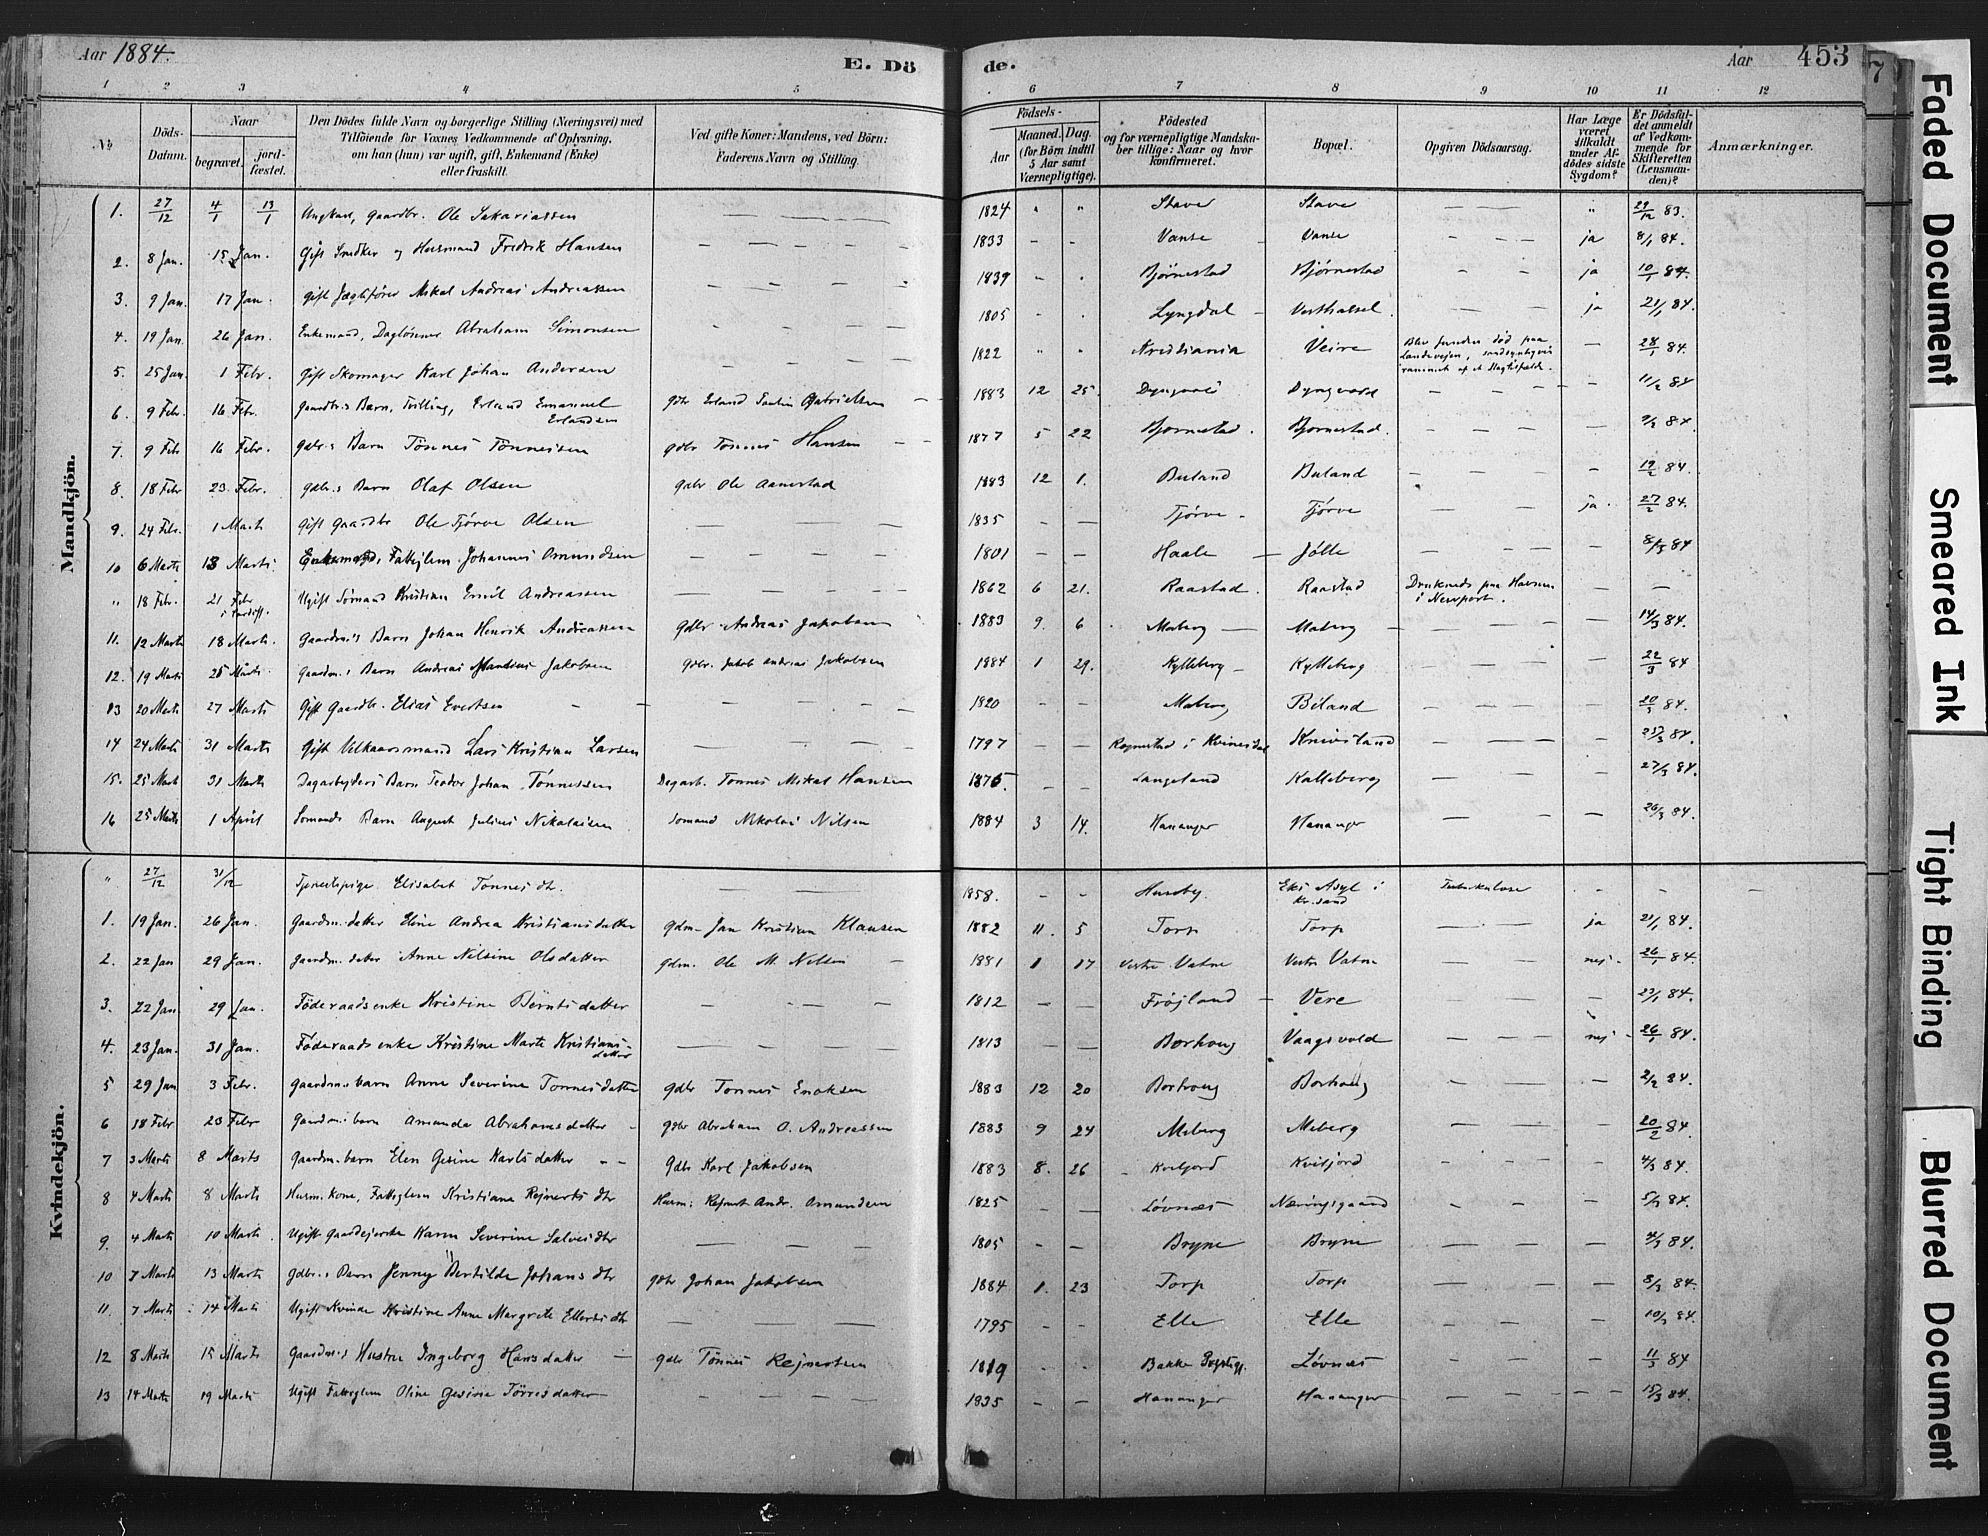 Aar 1884.
E. Dö
de.
Aar 453
1 2 3 4 5 6 7 8 9 10 11 12
No
Döds-Datum.
Naar
begravet.
jord-fæstet.
Den Dödes fulde Navn og borgerlige Stilling (Næringsvei) med
Tilföiende for Voxnes Vedkommende af Oplysning,
om han (hun) var ugift, gift, Enkemand (Enke)
eller fraskilt.
Ved gifte Koner: Mandens, ved Börn:
Faderens Navn og Stilling.
Födsels-
Aar
Maaned. Dag.
(for Börn indtil
5 Aar samt
Værnepligtige).
Födested
og for værnepligtige Mandska-
ber tillige: Naar og hvor
konfirmeret.
Bopæl.
Opgiven Dödsaarsag.
Har Læge
været
tilkaldt
under Af-
dödes sidste
Sygdom?
Er Dödsfal-
det anmeldt
af Vedkom-
mende for
Skifteretten
(Lensman-
den)?
Anmærkninger.
Mandkjön.
1. 27/12 4/1 13/1 Ungkarl, gaardbr. Ole Sakariassen — — — 1824 " " Stave Stave — — — " 29/12 83.
2. 8 Jan. 15 Jan. Gift Snedker og Husmand Fredrik Hansen — — — 1833 - - Vanse Vanse — — — ja 8/1 84.
3. 9 Jan. 17 Jan. Gift Jægtfører Mikal Andreas Andreassen — — — 1839 - - Bjørnestad Bjørnestad - - ja 10/1 84.
4. 19 Jan. 26 Jan. Enkemand, Daglønner Abraham Simonsen - — — 1805 - - Lyngdal Vesthassel. ja 21/1 84.
5. 25 Jan. 1 Febr. Gift Skomager Karl Johan Andersen - - — 1822 " " Kristiania Veire Blev funden død paa
Landevejen, sandsynligvis
rammet af et Slagtilfælde. — 28/1 84.
6. 9 Febr. 16 Febr. Gaardbr.s Barn, Tvilling, Erland Emanuel
Erlandsen gdbr Erland Gabrielsen 1883 12 25. Dyngvold Dyngvold - - — 11/2 84
7. 9 Febr 16 Febr. gdbr.s Barn Tønnes Tønnessen gdbr Tønnes Hansen — 1877 5 22 Bjørnestad. Bjørnestad. — — — 84.
8. 18 Febr 23 Febr. gdbr.s Barn Olaf Olsen gdbr Ole Aanestad 1883 12 1. Buland Buland - — — 19/2 84.
9. 24 Febr. 1 Marts Gift gaardbr Ole Tjørve Olsen — — — 1835 — — Tjørve Tjørve — — ja. 27/2 84.
10 6 Marts 13 Marts Enkemand, Fattiglem Johannes Amundsen — — — 1801 — — Haale Jølle - — — 8/3 84
" 18 Febr. 21 Febr
i Cardiff. Ugift Sømand Kristian Emil Andreassen — — — 1862 6 21. Raastad. Raastad Druknede paa Havnen
i Newport. — —
11. 12 Marts 18 Marts. Gaardm.s Barn Johan Henrik Andreassen gdbr Andreas Jakobsen 1883 9. 6 Maberg Maberg - — — 14/3 84.
12. 19 Marts 25 Marts. Gaardm.s Barn Andreas Martinus Jakobsen gdbr. Jakob Andreas Jakobsen 1884 1 29. Kylleberg Kylleberg — — — 22/3 84
13 20 Marts 27 Marts Gift Gaardbr. Elias Evertsen — — — 1820 — — Maberg Biland — — — 20/3 84.
14 24 Marts 31 Marts Gift Vilkaarsmand Lars Kristian Larsen — — — 1797 — — Røjnestad i Kvinesdal Knivsland — — — 25/3 84.
15. 25 Marts 31 Marts Dagarbejders Barn Teodor Johan Tønnessen Dagarb. Tønnes Mikal Hansen 1876. — — Langeland Kalleberg — — — 27/3 84.
16 25 Marts 1 April Sømands Barn August Julius Nikolaisen Sømand Nikolai Nilsen 1884 3 14. Hananger Hananger — — — 26/3 84.
Kvindekjön.
" 27/12 31/12 Tjenestepige. Elisabet Tønnesdtr. — — 1858. - - Huseby. Eks Asyl i
Kr.sand Tuberkulose - - -
1. 19 Jan. 26 Jan. Gaardm.datter Eline Andrea Kristiansdatter gdm. Jan Kristian Klausen 1882 11. 5 Torp Torp — — ja 21/1 84.
2. 22 Jan 29 Jan. Gaardm.datter Anne Nilsine Olsdatter gdm. Ole M. Nilsen — 1881 1 17 Vestre Vatne Vestre Vatne — — nej. 26/1 84.
3. 22 Jan 29 Jan. Føderaadsenke Kristine Berntsdatter — — — 1812 — — Frøjland Vere — — — 23/1 84.
4. 23 Jan. 31 Jan. Føderaadsenke Kristine Marte Kristians-
datter — — — 1813 — — Borhoug Vaagsvold — — nej 26/1 84.
5 29 Jan 3 Febr. Gaardm.s barn Anne Severine Tønnesdatter gdbr Tønnes Enoksen 1883 12 20 Borhoug Borhoug — — — 2/2 84.
6 18 Febr 23 Febr Gaardm.s barn Amanda Abrahamsdatter gdbr Abraham O. Andreassen 1883 9 24 Meberg Meberg — — — 20/2 84.
7 3 Marts 8 Marts Gaardm.barn Elen Gesine Karlsdatter gdbr Karl Jakobsen 1883 8. 26 Kviljord Kviljord — — — 4/3 84.
8 4 Marts 8 Marts Husm.kone, Fattiglem Kristiane Rejnertsdtr Husm: Rejnert Andr. Amundsen 1825 — — Løvnæs Næringsgaard - - — 5/3 84.
9. 4 Marts 10 Marts. Ugift Gaardejerske Karen Severine Salvesdtr — — — 1805 - — Bryne Bryne — — — 4/3 84.
10 7 Marts 13 Marts Gdbr.s Barn Jenny Bertilde Johansdtr gdbr Johan Jakobsen 1884 1. 23 Torp Torp — — — 8/3 84.
11. 7 Marts 14 Marts Ugift Kvinde Kristine Anne Margrete Ellertsdtr — — — 1795 - - Elle Elle — — — 10/3 84.
12 8 Marts 15 Marts Gaardm.s Hustru Ingeborg Hansdatter gdbr Tønnes Rejnertsen 1819 - - Bakke Prgjeld. Løvnæs — — — 11/3 84
13 14 Marts 19 Marts Ugift Fattiglem Oline Gesine Tørresdatter — — — 1835 — — Hananger Hananger — — — 15/3 84.
7
Faded Document
Smeared Ink
Tight Binding
Blurred Document